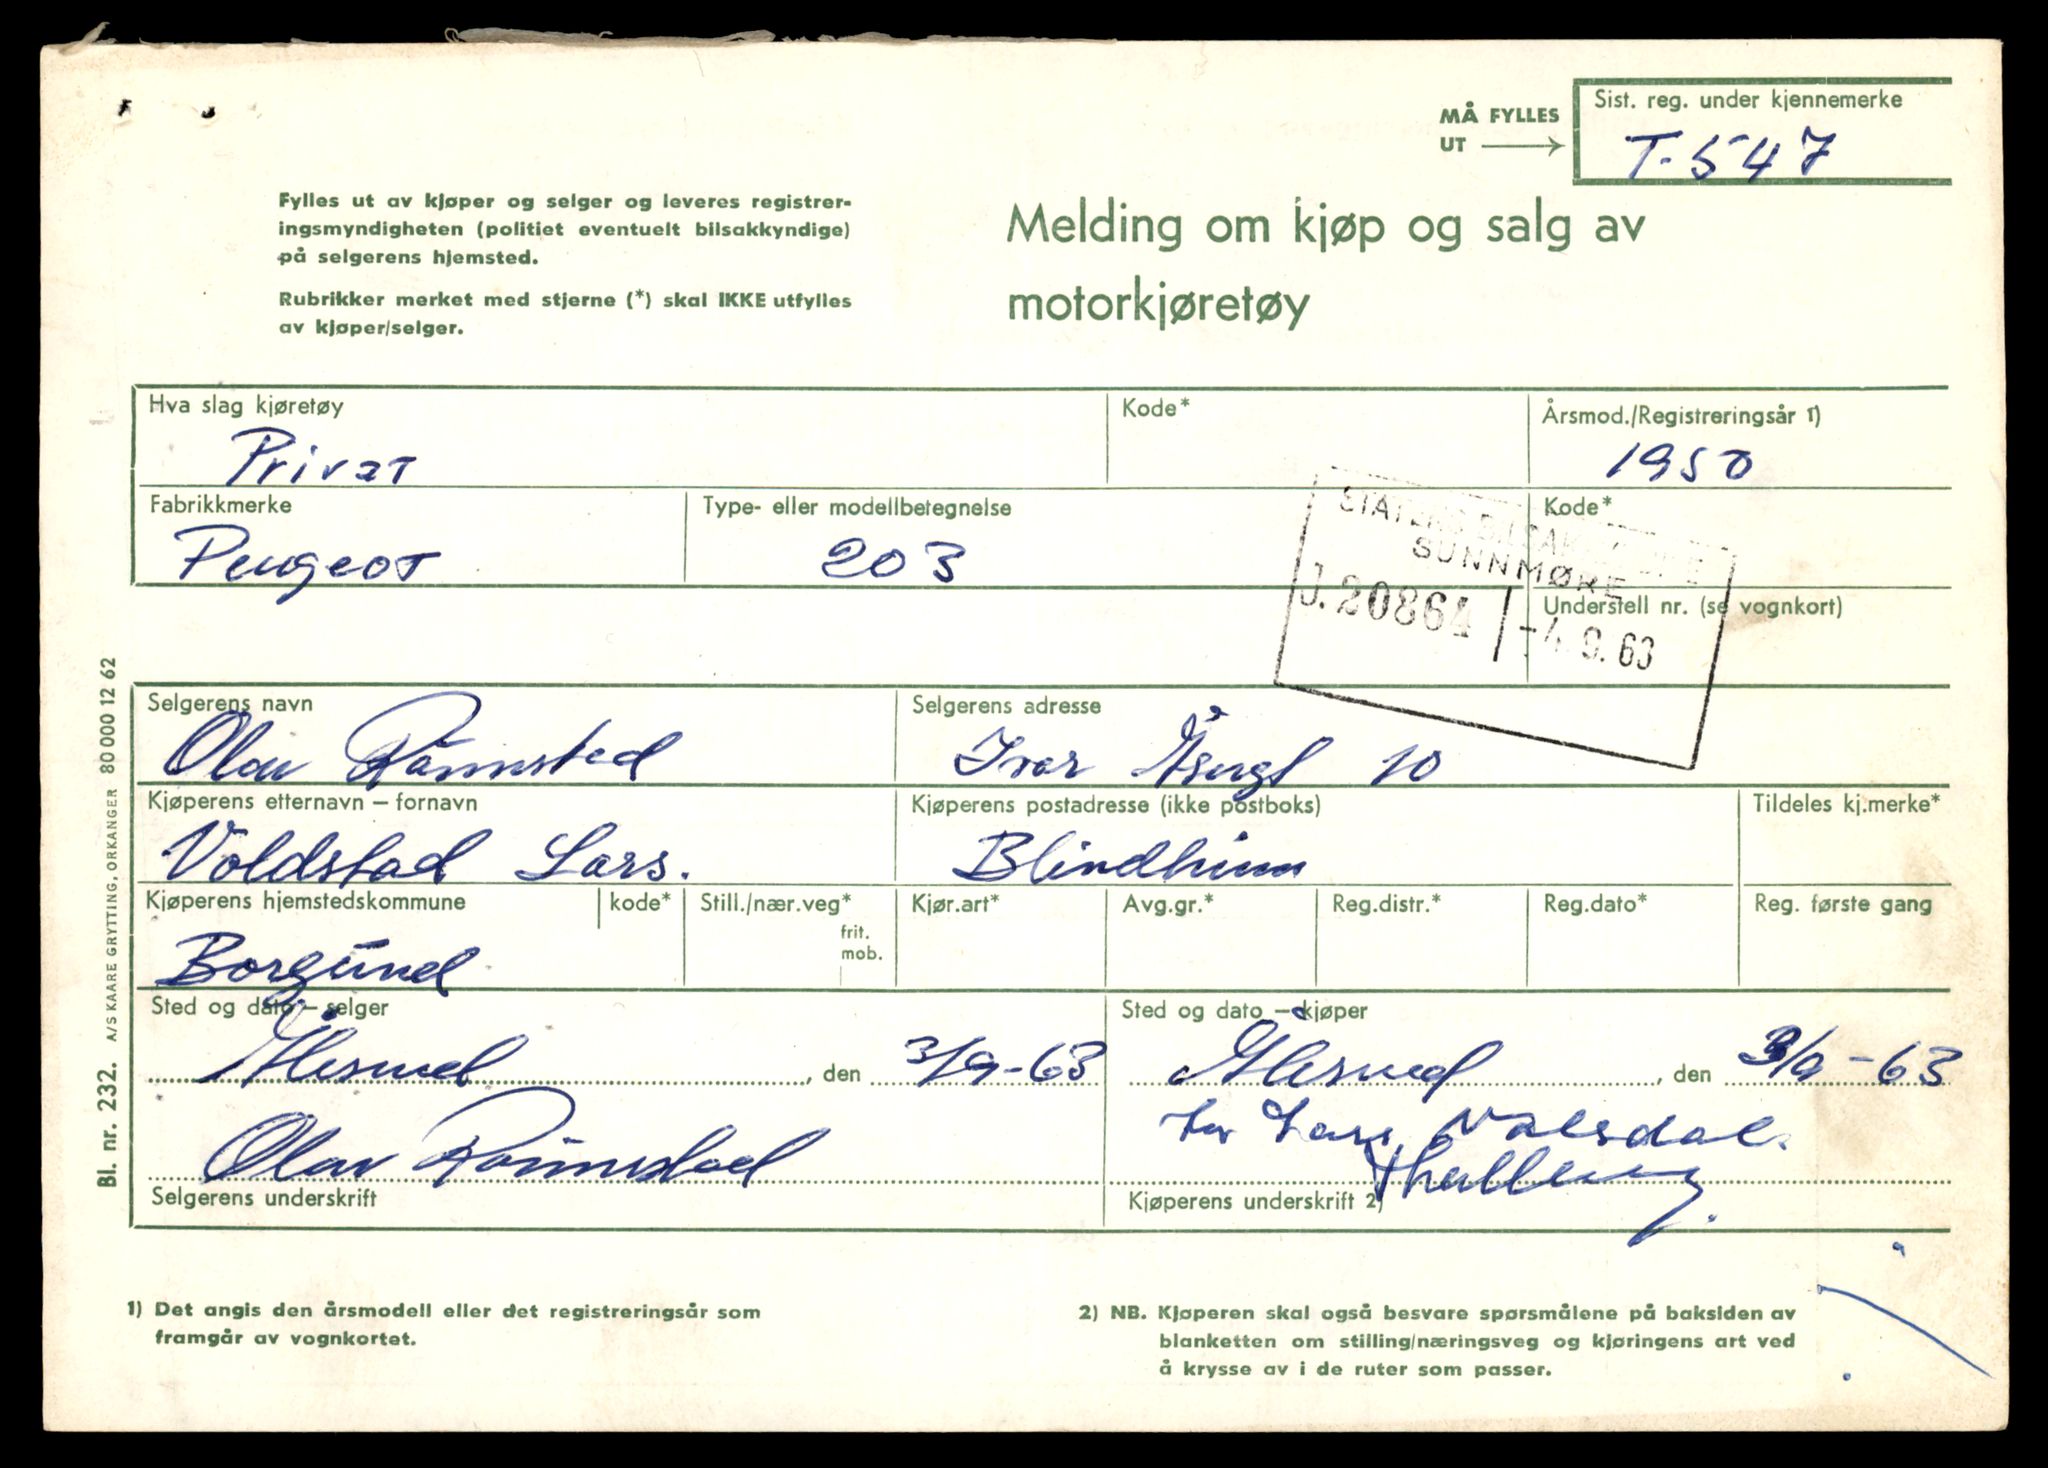 MÅ FYLLES
UT
Sist. reg. under kjennemerke
T-547
Fylles ut av kjøper og selger og leveres registrer-
ingsmyndigheten (politiet eventuelt bilsakkyndige)
på selgerens hjemsted.
Rubrikker merket med stjerne (*) skal IKKE utfylles
av kjøper/selger.
Melding om kjøp og salg av
motorkjøretøy
Hva slag kjøretøy
Privat
Kode*
Årsmod./Registreringsår 1)
1950
Fabrikkmerke
Peugeot
Type- eller modellbetegnelse
203
Kode*
STATENS BILSAKKYNDIGE
SUNNMØRE
J. 20864 -4. 9. 63
Understell nr. (se vognkort)
Selgerens navn
Olav Rømmstad
Selgerens adresse
Ivar 10
Kjøperens etternavn – fornavn
Voldstad Lars.
Kjøperens postadresse (ikke postboks)
Blindheim
Tildeles kj.merke*
Kjøperens hjemstedskommune
Borgund
kode*
Still./nær.veg*
frit.
mob.
Kjør.art*
Avg.gr.*
Reg.distr.*
Reg.dato*
Reg. første gang
Sted og dato – selger
Ålesund, den 3/9-63
Sted og dato – kjøper
Ålesund, den 3/9-63
Olav Rømmstad
Selgerens underskrift
Lars
Kjøperens underskrift 2)
1) Det angis den årsmodell eller det registreringsår som
framgår av vognkortet.
2) NB. Kjøperen skal også besvare spørsmålene på baksiden av
blanketten om stilling/næringsveg og kjøringens art ved
å krysse av i de ruter som passer.
Bl. nr. 232. A/S KAARE GRYTTING, ORKANGER 80 000 12 62